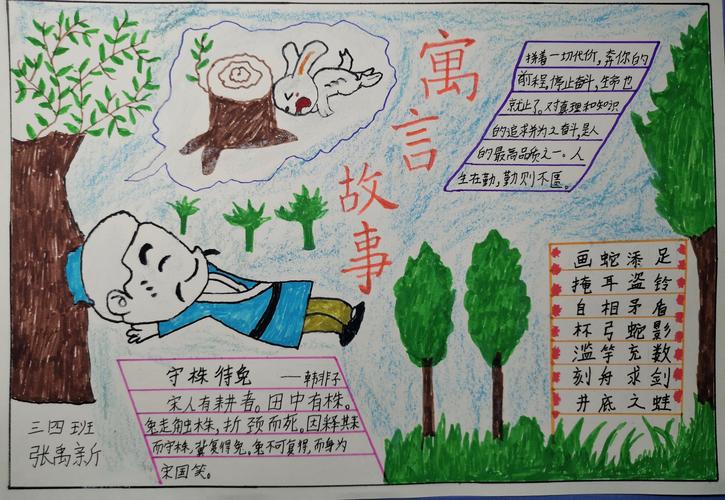 寓言故事
拼着一切代价，奔你的
前程，停止奋斗，生命也
就止了。对真理和知识
的追求并为之奋斗，是人
的最高品质之一。人
生在勤，勤则不匮。
画蛇添足
掩耳盗铃
自相矛盾
杯弓蛇影
滥竽充数
刻舟求剑
井底之蛙
守株待兔 ——韩非子
宋人有耕者。田中有株。
兔走触株，折颈而死。因释其耒
而守株，冀复得兔。兔不可复得，而身为
宋国笑。
三四班
张禹新